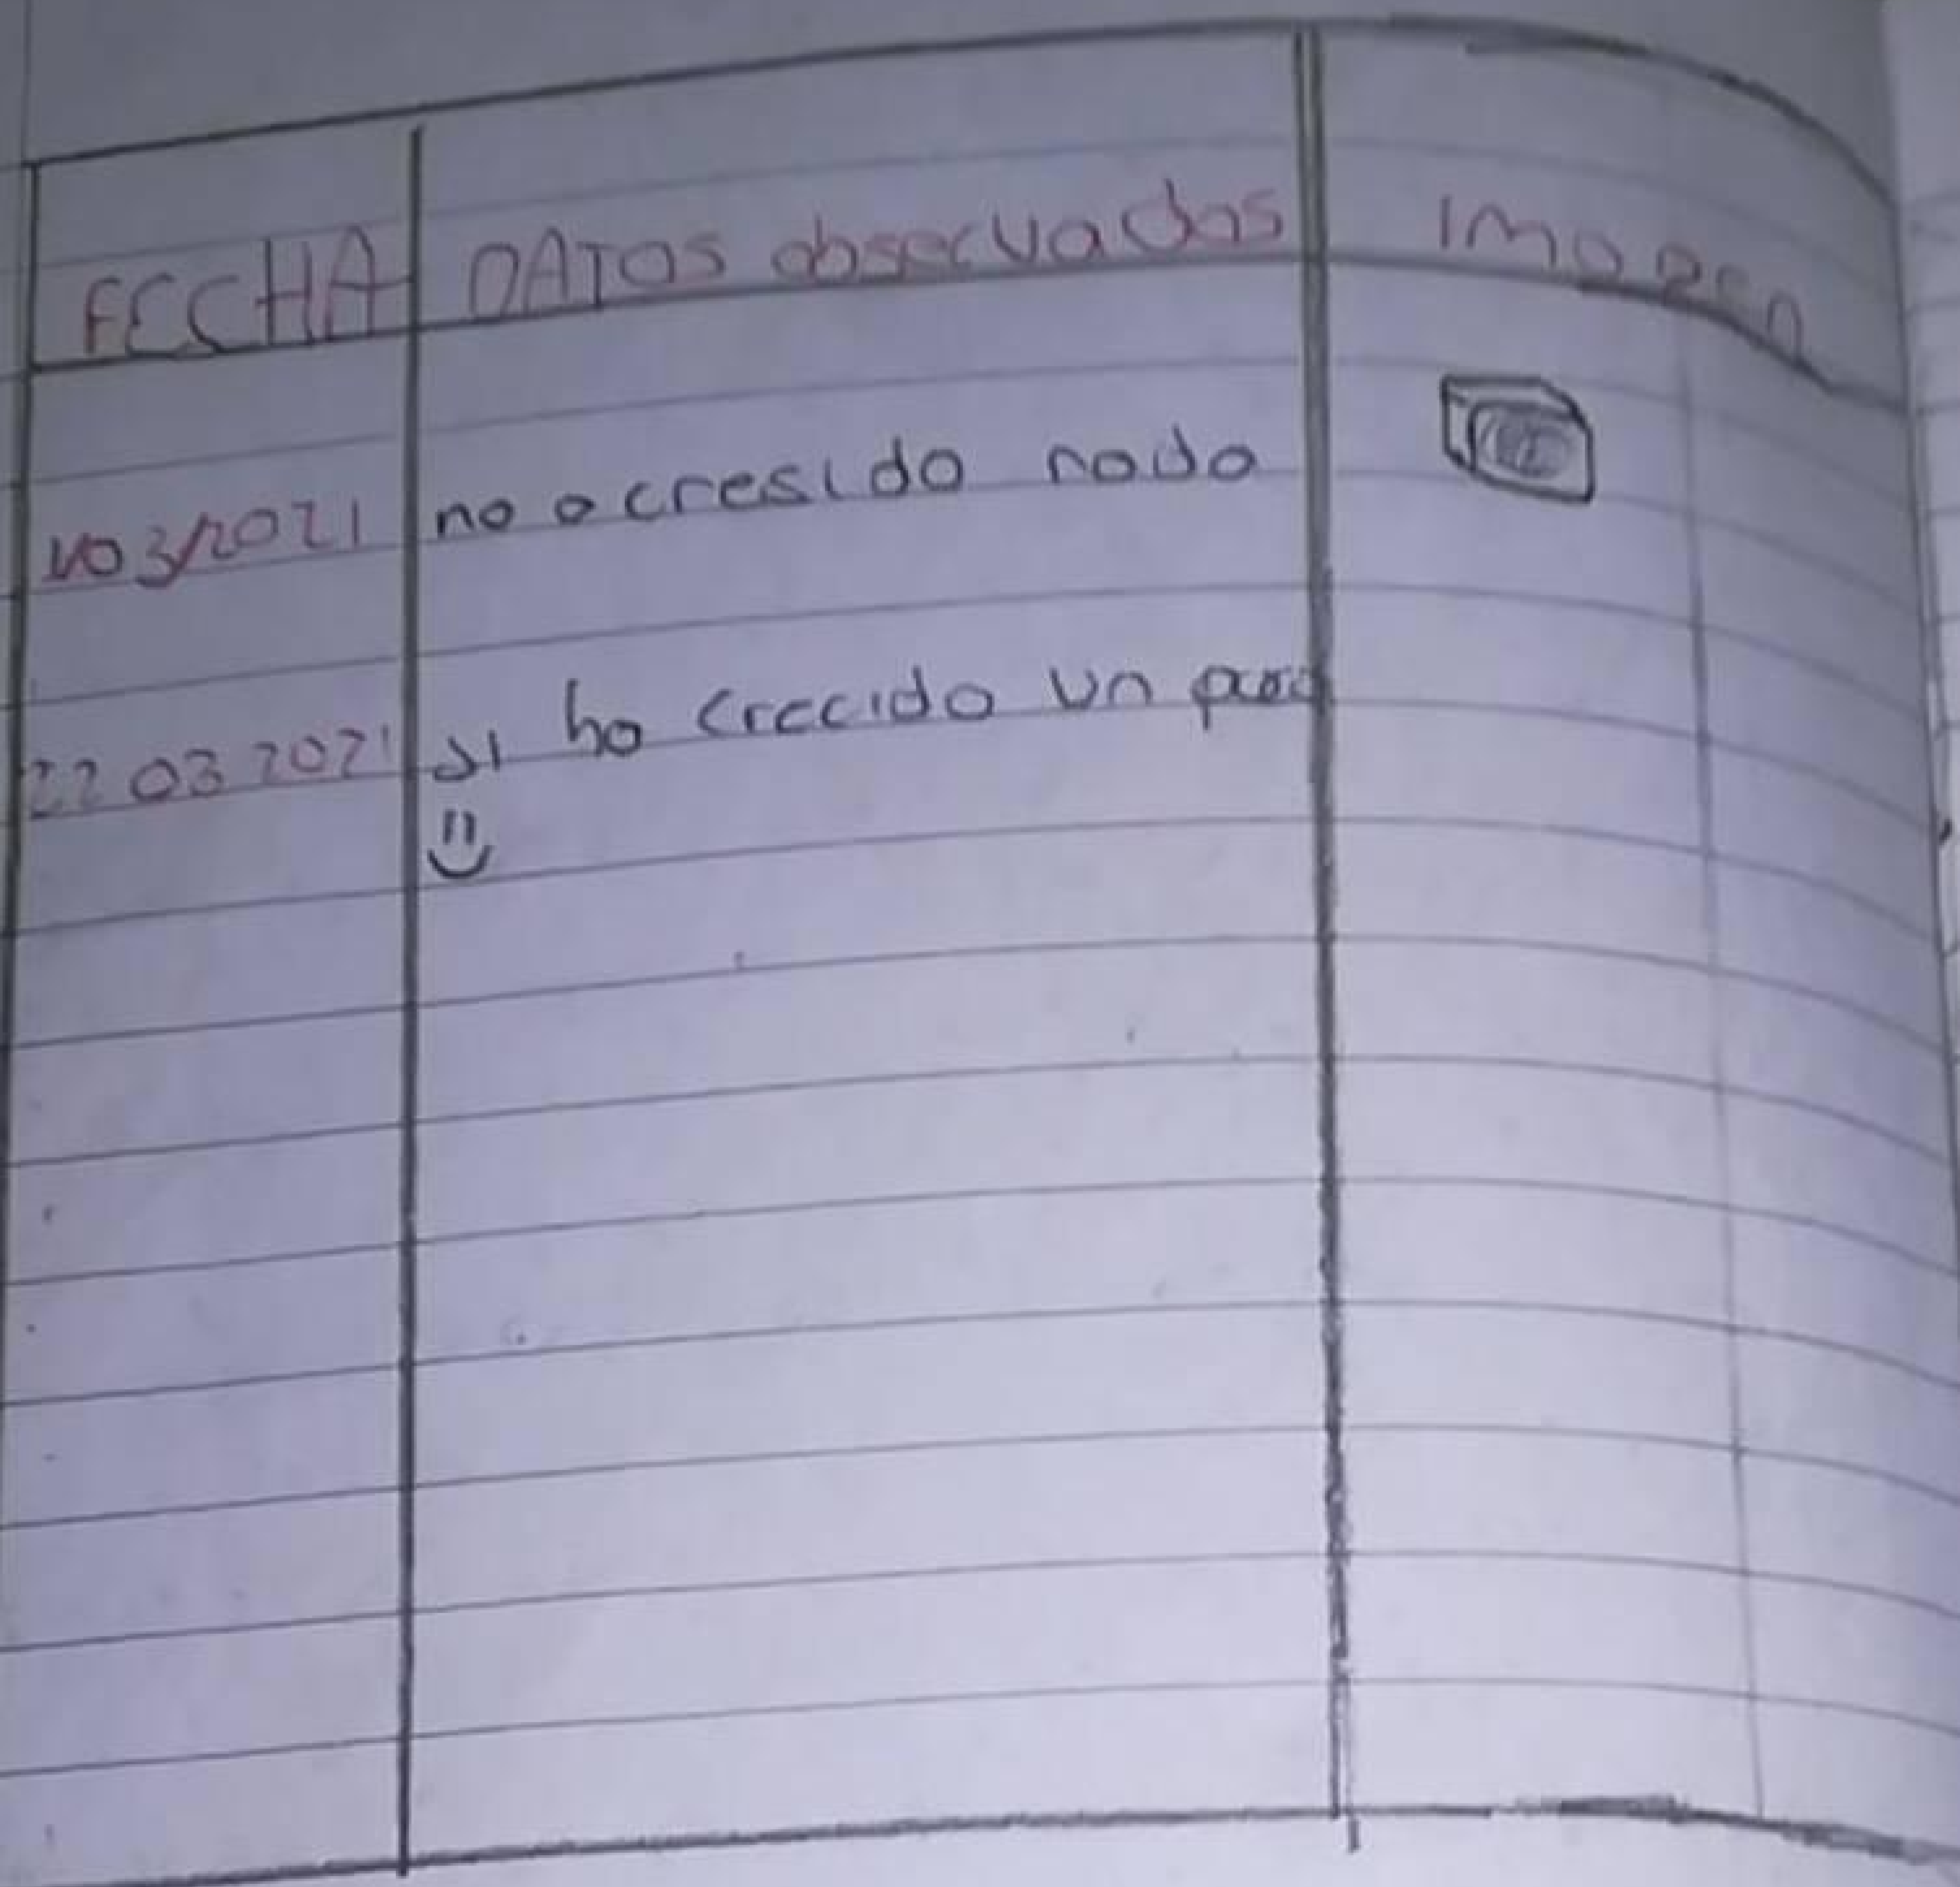 FECHA DATOS observados IMagen
1/03/2021 no a cresido nada
22 03 2021 si ha crecido un poco